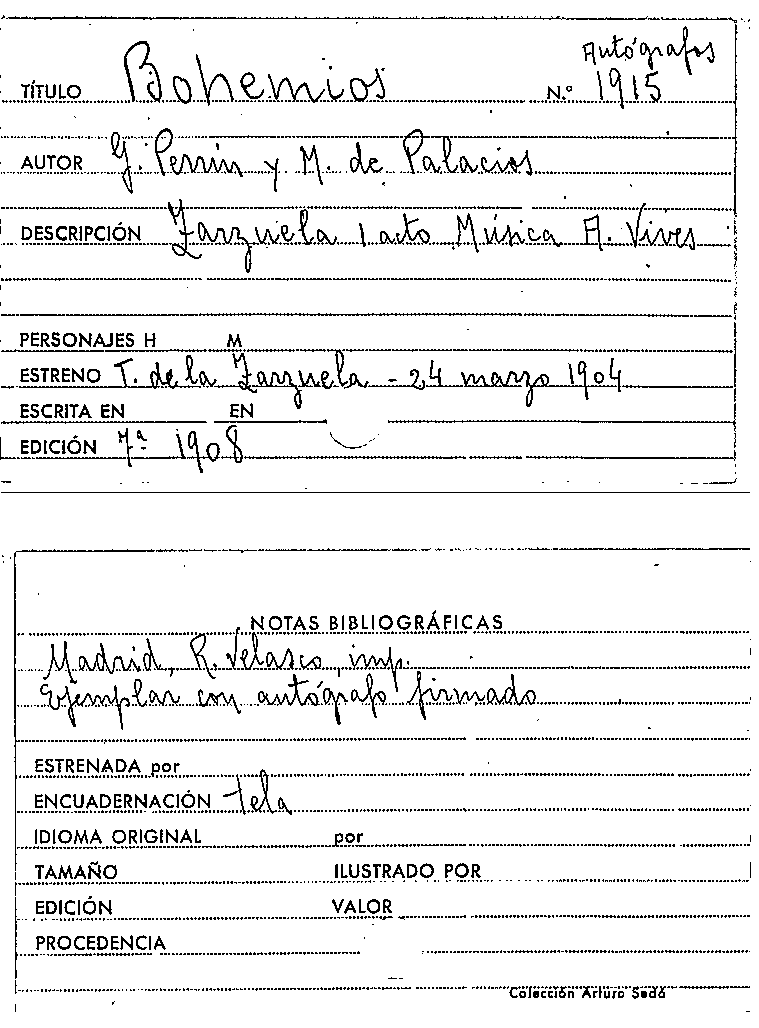 Autógrafos
TÍTULO Bohemios N.º 1915
AUTOR G. Perrín y M. de Palacios
DESCRIPCIÓN Zarzuela 1 acto Música A. Vives
PERSONAJES H M
ESTRENO T. de la Zarzuela - 24 marzo 1904
ESCRITA EN EN
EDICIÓN 7ª 1908
NOTAS BIBLIOGRÁFICAS
Madrid, R. Velasco, imp.
Ejemplar con autógrafo firmado
ESTRENADA por
ENCUADERNACIÓN tela
IDIOMA ORIGINAL por
TAMAÑO ILUSTRADO POR
EDICIÓN VALOR
PROCEDENCIA
Colección Arturo Sedó